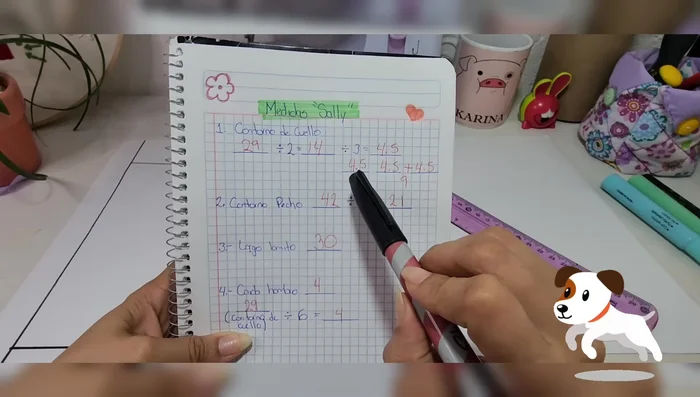 Medidas "Sally"
1. Contorno de Cuello
29 ÷ 2 = 14 ÷ 3 = 4.5
4.5 4.5 + 4.5
9
2. Contorno Pecho 42 ÷ 21
3.- Largo lomito 30
4.- Ancho hombro 4
29
(contorno de ÷ 6 = 4
cuello)
KARINA